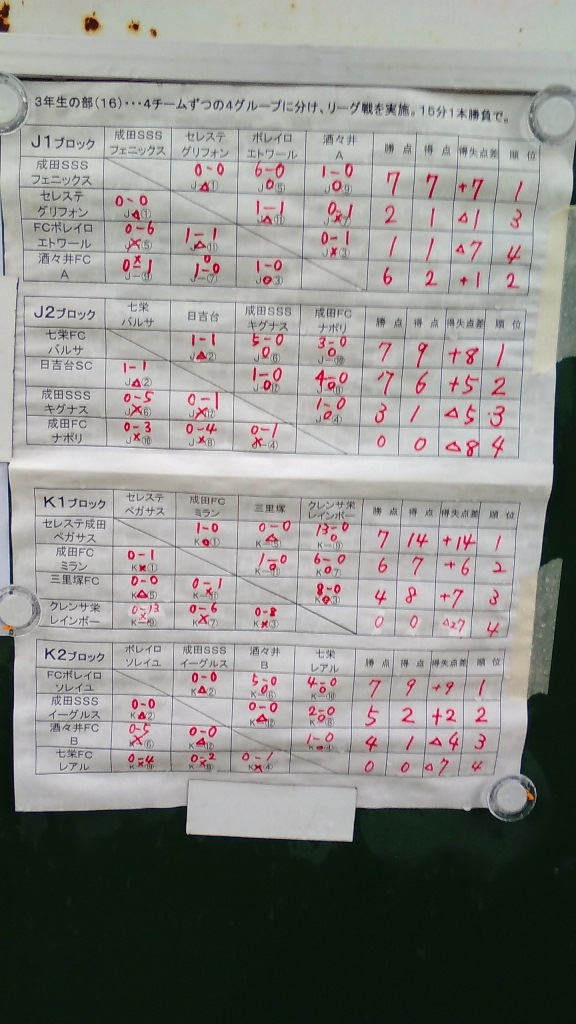 3年生の部(16)・・・4チームずつの4グループに分け、リーグ戦を実施。15分1本勝負で。
J1ブロック 成田SSSフェニックス セレステグリフォン ボレイロエトワール 酒々井A 勝点 得点 得失点差 順位
成田SSSフェニックス 0-0 J△① 6-0 J○⑤ 1-0 J○⑨ 7 7 +7 1
セレステグリフォン 0-0 J△① 1-1 J△⑪ 0-1 J×⑦ 2 1 △1 3
FCボレイロエトワール 0-6 J×⑤ 1-1 J△⑪ 0-1 J×③ 1 1 △7 4
酒々井FCA 1-0 J○③ 6 2 +1 2
J2ブロック 七栄バルサ 日吉台 成田SSSキグナス 成田FCナポリ 勝点 得点 得失点差 順位
七栄FCバルサ 1-1 J△② 5-0 J○⑥ 3-0 J○⑩ 7 9 +8 1
日吉台SC 1-1 J△② 1-0 J○⑫ 4-0 J○⑧ 7 6 +5 2
成田SSSキグナス 0-5 J×⑥ 0-1 J×⑫ 1-0 J○④ 3 1 △5 3
成田FCナポリ 0-3 J×⑩ 0-4 J×⑧ 0-1 J×④ 0 0 △8 4
K1ブロック セレステペガサス 成田FCミラン 三里塚 クレンサ栄レインボー 勝点 得点 得失点差 順位
セレステ成田ペガサス 1-0 K○① 0-0 K△⑤ 13-0 K○⑨ 7 14 +14 1
成田FCミラン 0-1 K×① 1-0 K○⑪ 6-0 K○⑦ 6 7 +6 2
三里塚FC 0-0 K△⑤ 0-1 K×⑪ 8-0 K○③ 4 8 +7 3
クレンサ栄レインボー 0-13 K×⑨ 0-6 K×⑦ 0-8 K×③ 0 0 △27 4
K2ブロック ボレイロソレイユ 成田SSSイーグルス 酒々井B 七栄レアル 勝点 得点 得失点差 順位
FCボレイロソレイユ 0-0 K△② 5-0 K○⑥ 4-0 K○⑩ 7 9 +9 1
成田SSSイーグルス 0-0 K△② 0-0 K△⑫ 2-0 K○⑧ 5 2 +2 2
酒々井FCB 0-5 K×⑥ 0-0 K△⑫ 1-0 K○④ 4 1 △4 3
七栄FCレアル 0-4 K×⑩ 0-2 K×⑧ 0-1 K×④ 0 0 △7 4